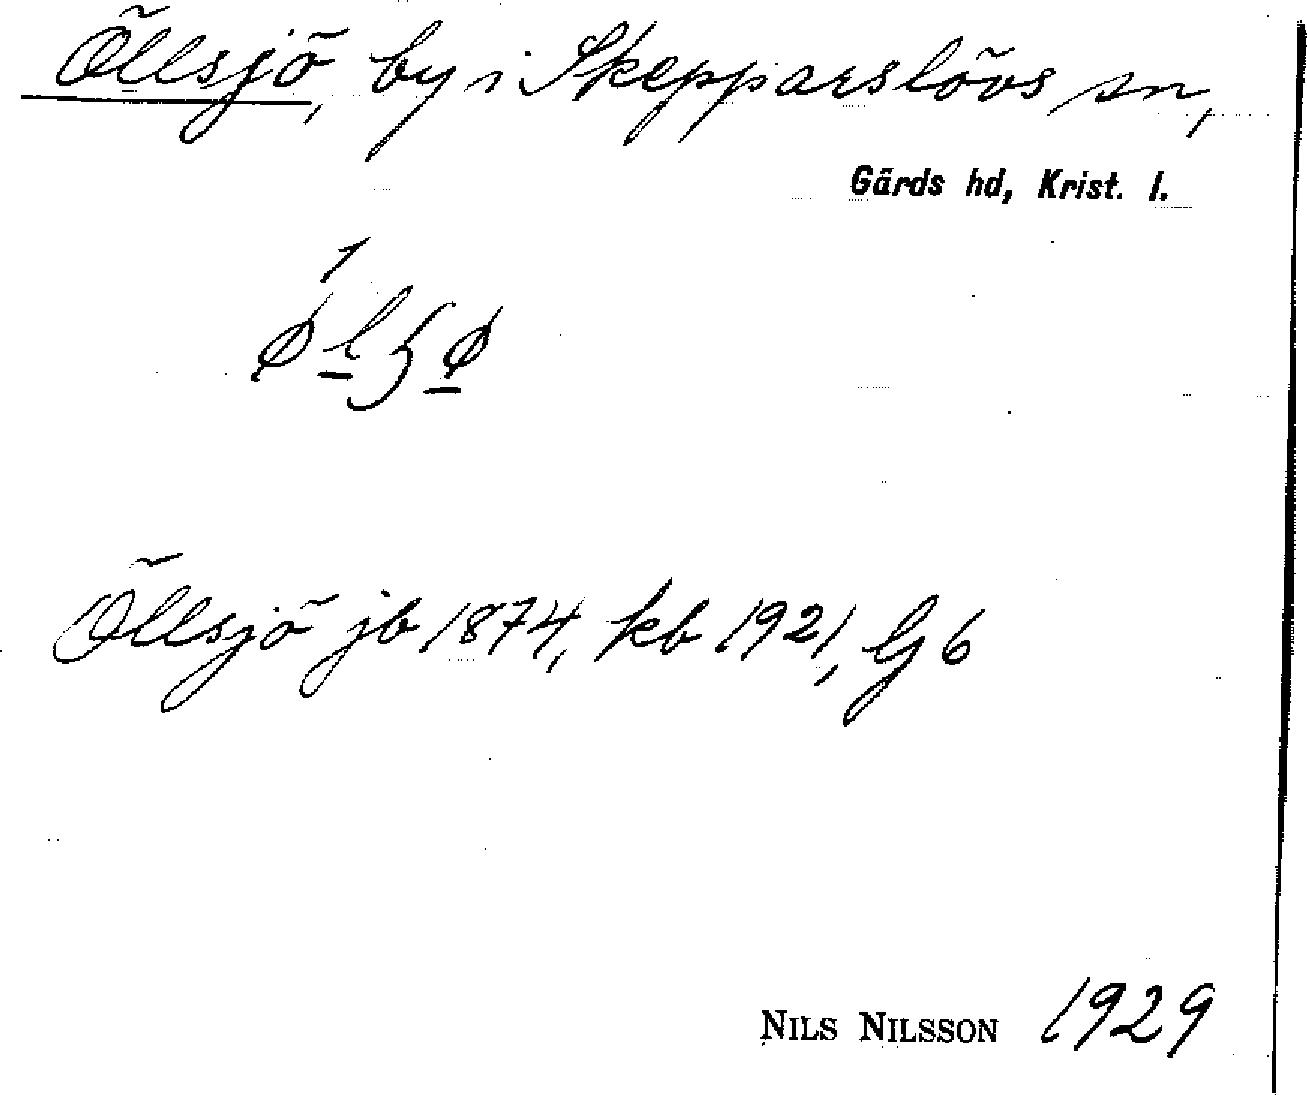 Öllsjö, by i Skepparslövs sn,
Gärds hd, Krist. l.
Öllsjö jb 1874, kb 1921, G 6
NILS NILSSON 1929